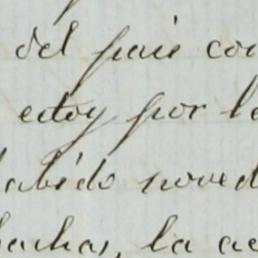 del pais con
estoy por le
habido noved
hachas, la ac